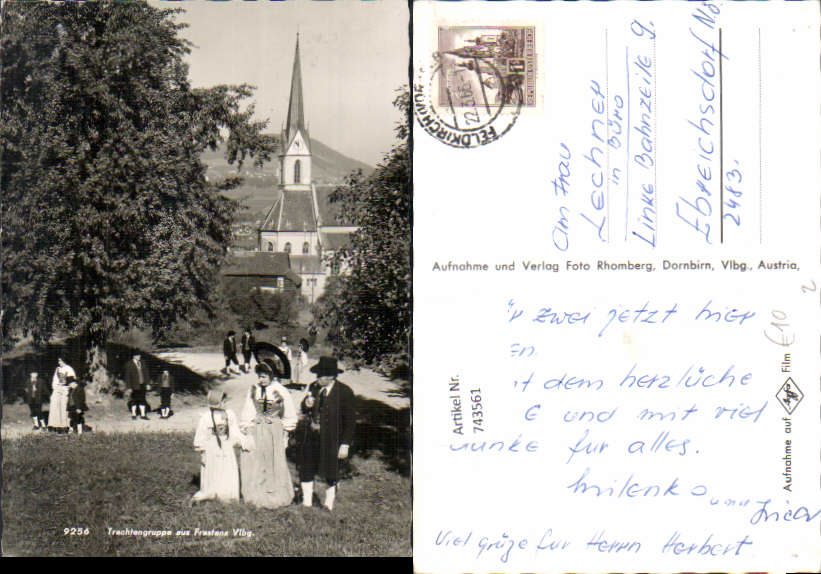 9256 Trachtengruppe aus Frastanz Vlbg.
FELDKIRCH
22.5.65
REPUBLIK ÖSTERREICH
An Frau
Lechner
in Büro
Linke Bahnzeile 9.
Ebreichsdorf Nö.
2483.
Aufnahme und Verlag Foto Rhomberg, Dornbirn, Vlbg., Austria,
zwei jetzt hier
en.
dem herzlüche
E und mit viel
für alles.
Milenko und
Viel grüze fur Herrn Herbert
Artikel Nr.
743561
€10
2
Aufnahme auf Agfa Film